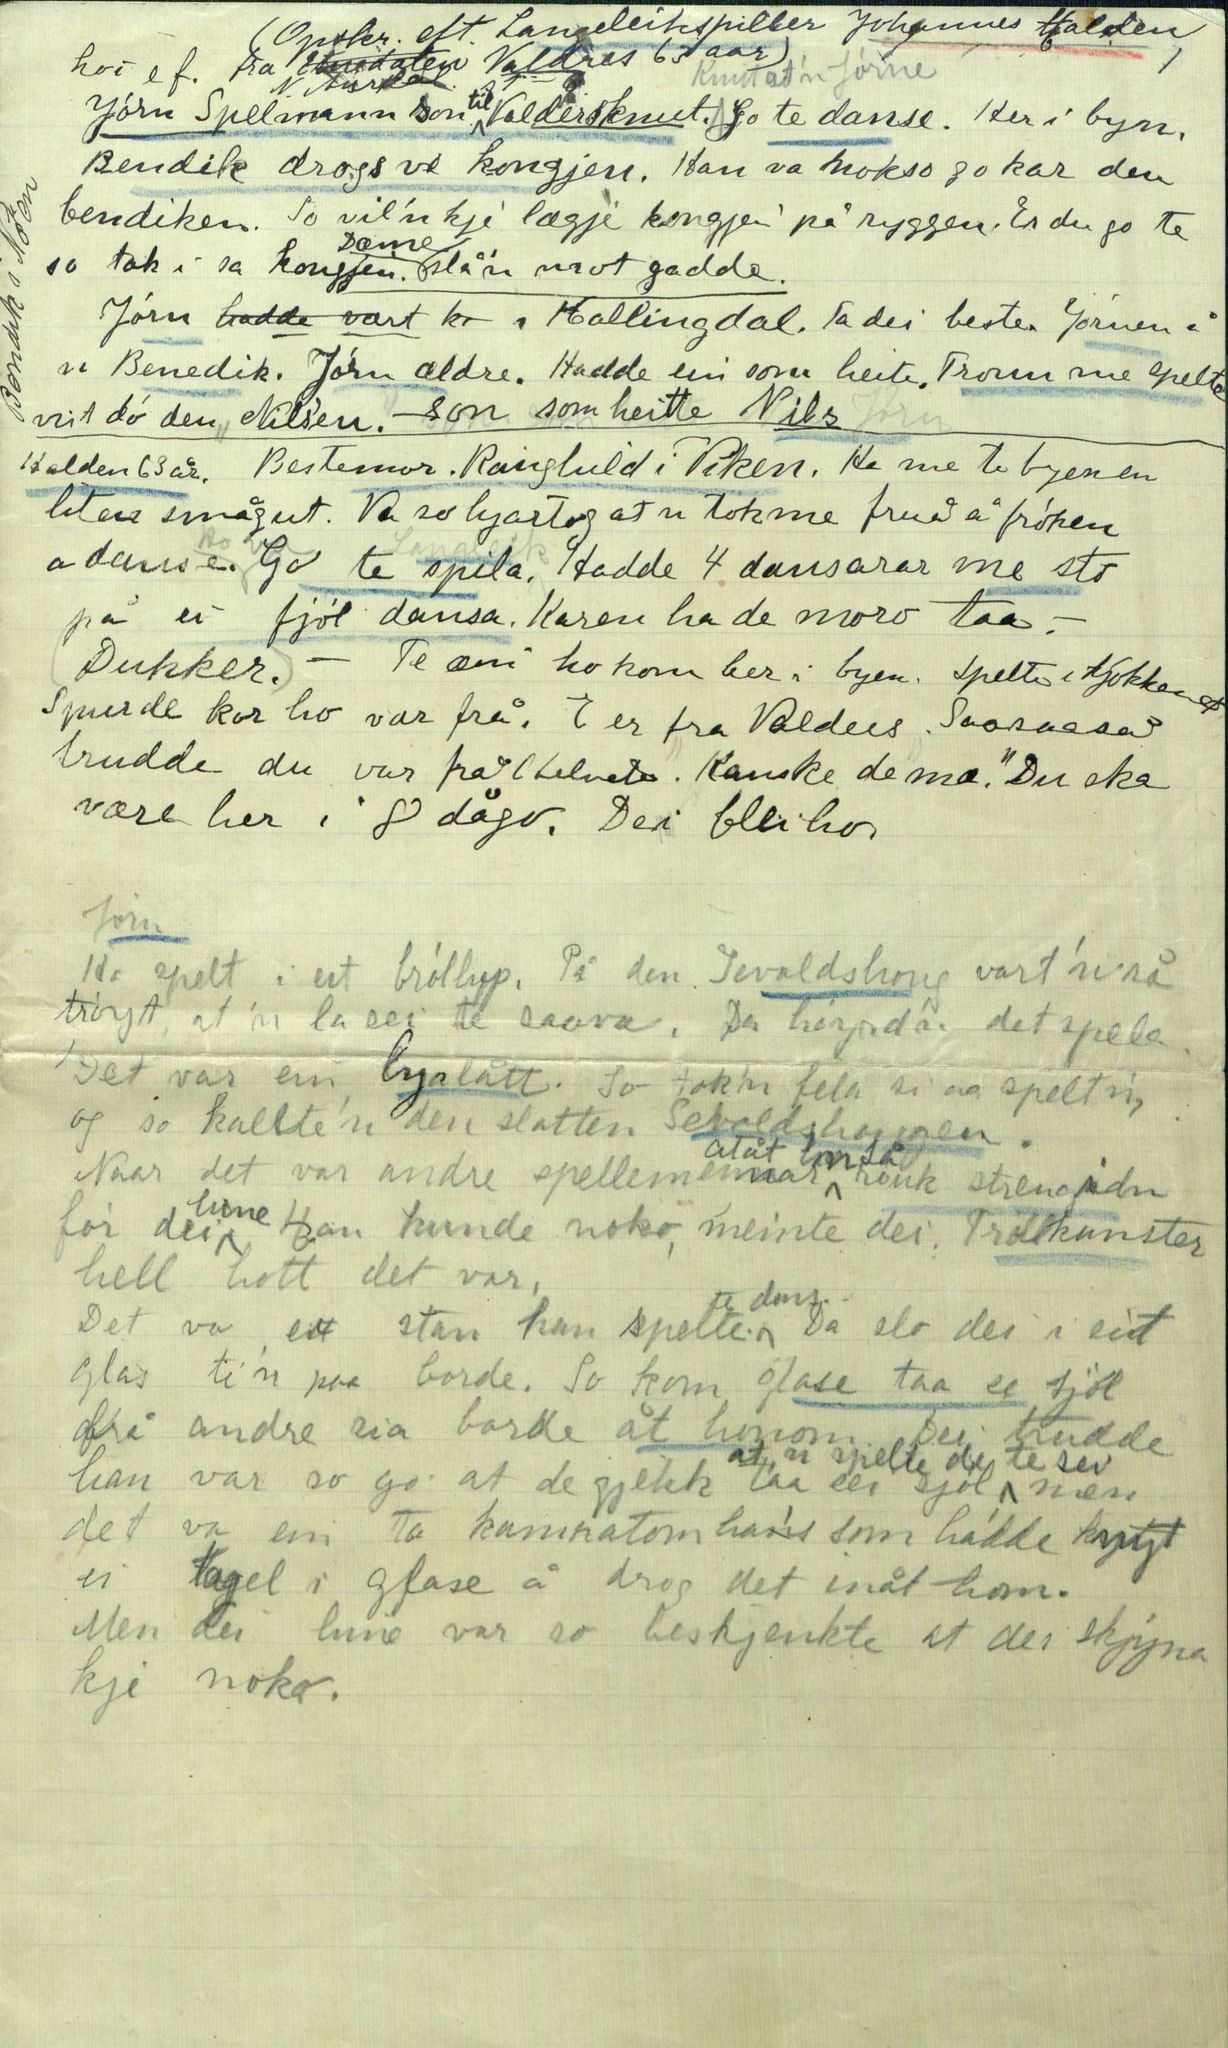 (Opskr. eft. Langeleikspiller Johannes Halden,
hos ef. fra Valdres 63 aar)
N. Aurdal
Knutat'n Jörne
Jörn Spelmann son til Valdersknut. Go te danse. Her i byn.
Bendik drogs ve kongjen. Han va nokso go kar den
bendiken. So vil'n kje lægje kongjen på ryggen. Er du go te
so tak i sa kongjen. Dæme slå'n mot gadde.
Bendik i Nöten
Jörn hadde vært ko i Hallingdal. Ta dei beste. Jörnen å
n Benedik. Jörn ældre. Hadde ein som heite. Tronn me spelte
vist dö den „Nilsen. – son som heitte Nils
Halden 63 år. Bestemor. Ranghild i Viken. Ha me te byen en
liten smågut. Va so hjartog at n tok me frua å fröken
a danse. Ho va Go te spila. Langleik Hadde 4 dansarar me sto
på ei fjöl dansa. Karen ha de moro taa. –
(Dukker.) – Te æni ho kom her i byen. spelte i kjökkenet
Spurde kor ho var frå. E er fra Valders. Saasaasaa
trudde du var frå helvete. Kanske de mæ." Du ska
være her i 8 dågo. Dei blei ho
Jörn
Ha spelt i eit bröllup. På den Sevaldshoug vart 'n så
tröyt, at 'n la sei te saava. Da höyrd'n det spela.
Det var ein lyalått. So tok'n fela si aa spelt'n,
og so kallte'n den slåtten Sevaldshougen.
Naar det var andre spellemennar atåt honså rauk strengidn
för dei hine Han kunde noko, meinte dei. Trolkunster
hell hott det var,
Det va eit stan han spelte te dans. Da slo dei i eit
glas ti'n paa borde. So kom glase taa se sjöl
frå andre sia borde åt honom. Dei trudde
han var so go at de gjekk taa sei sjöl at 'n spelte de te sei men
det va ein ta kamratom hans som hadde knytt
ei tagel i glase å drog det inåt hom.
Men dei hine var so beskjenkte at dei skjyna
kje noko.